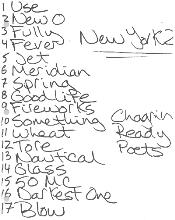 1 Use
2 New O
3 Fully
4 Fever
5 Jet
6 Meridian
7 Spring
8 Good Life
9 Fireworks
10 Something
11 Wheat
12 Tore
13 Nautical
14 Glass
15 50 MC
16 Darkest One
17 Blow
New York 2
Chaapin
Ready
Poets